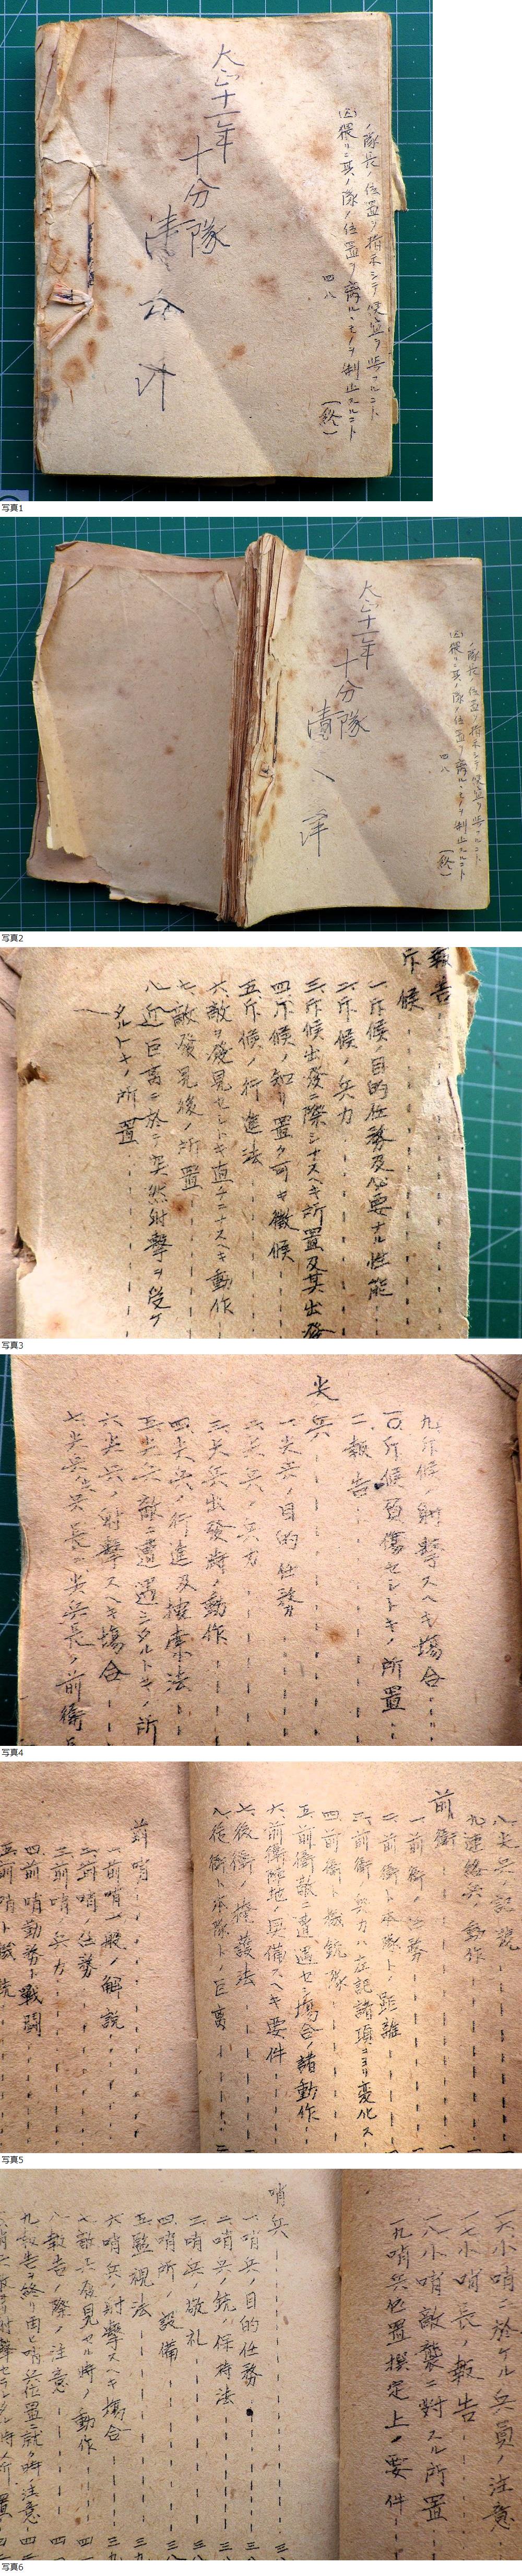 ノ隊長ノ位置ヲ指示シテ
(五)猥リニ其ノ隊ノ位置ヲ離ルヽモノヲ制止スルコト
四八
(終)
大正十一年
十分隊
写真1
ノ隊長ノ位置ヲ指示シテ
(五)猥リニ其ノ隊ノ位置ヲ離ルヽモノヲ制止スルコト
四八
(終)
大正十一年
十分隊
写真2
報告
斥候
一、斥候ノ目的任務及必要ナル性能
二、斥候ノ兵力
三、斥候出發ニ際シナスヘキ所置及其出發
四、斥候ノ知リ置ク可キ徴候
五、斥候ノ行進法
六、敵ヲ發見セシトキ直チニナスヘキ動作
七、敵發見後ノ所置
八、近巨离ニ於テ突然射擊ヲ受ケ
タルトキノ所置
写真3
九、斥候ノ射擊スヘキ場合
一〇、斥候負傷セシトキノ所置
二、報告
尖兵
一、尖兵ノ目的任務
二、尖兵ノ兵力
三、尖兵出發時ノ動作
四、尖兵ノ行進及捜索法
五、尖兵敵ニ遭遇シタルトキノ所
六、尖兵ノ射擊スヘキ場合
写真4
八、尖兵記號
九、連絡兵ノ動作
前衛
一、前衛ノ任務
二、前衛ト本隊トノ距離
三、前衛ノ兵力ハ左記諸項ニヨリ変化ス
四、前衛ト機銃隊
五、前衛敵ニ遭遇セシ場合ノ諸動作
六、前衛陣地ノ具備スヘキ要件
七、後衛ノ掩護法
八、後衛ト本隊トノ巨离
前哨
一、前哨一般ノ解説
二、前哨ノ任務
三、前哨ノ兵力
四、前哨勤務ト戰鬪
五、前哨ト機銃
写真5
一六、小哨ニ於ケル兵員ノ注意
一七、小哨長ノ報告
一八、小哨敵襲ニ對スル所置
一九、哨兵位置撰定上ノ要件
哨兵
一、哨兵ノ目的任務
二、哨兵ノ銃ノ保持法
三、哨兵ノ敬礼
四、哨所ノ設備
五、監視法
六、哨兵ノ射擊スヘキ場合
七、敵兵發見セル時ノ動作
八、報告ノ際ノ注意
九、報告ヲ終リ再ヒ哨兵位置ニ就ク時ノ注意
写真6